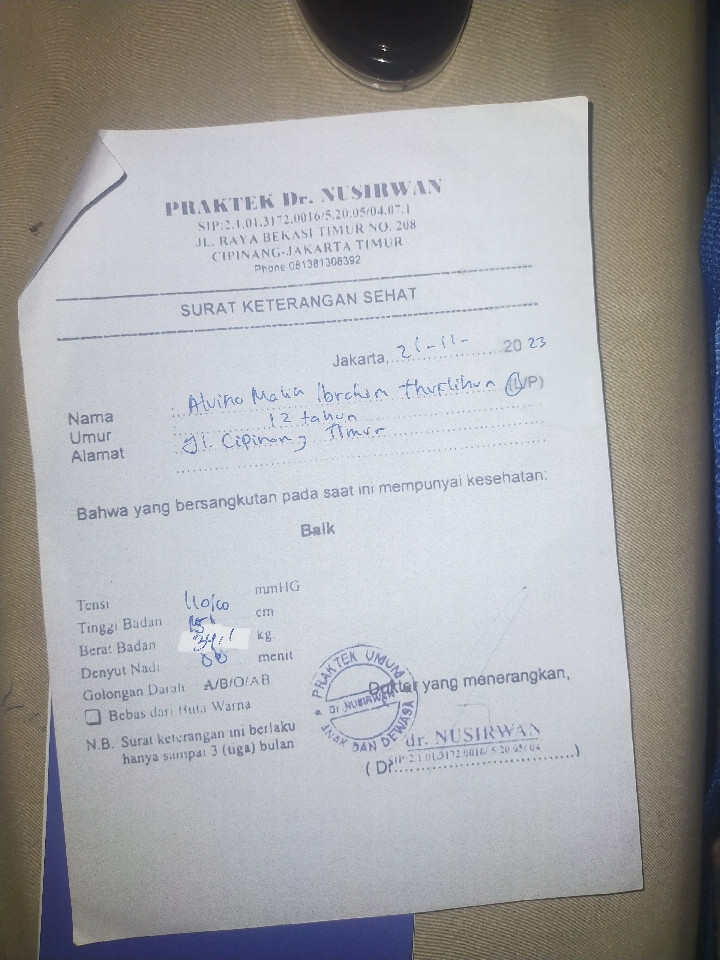 PRAKTEK Dr. NUSIRWAN
SIP:2.1.01.3172.0016/5.20.05/04.07.1
JL. RAYA BEKASI TIMUR NO. 208
CIPINANG-JAKARTA TIMUR
Phone 081381308392
SURAT KETERANGAN SEHAT
Jakarta, 21-11- 20 23
Nama : Alvino Ibrahim (L/P)
Umur : 12 tahun
Alamat : Jl. Cipinang Timur
Bahwa yang bersangkutan pada saat ini mempunyai kesehatan:
Baik
Tensi mmHG
Tinggi Badan 151 cm
Berat Badan kg.
Denyut Nadi menit
Golongan Darah A/B/O/AB
Bebas dari Buta Warna
N.B. Surat keterangan ini berlaku
hanya sampai 3 (tiga) bulan
PRAKTEK UMUM
Dr NUSIRWAN
ANAK DAN DEWASA
Dokter yang menerangkan,
dr. NUSIRWAN
SIP:2.1.01.3172.0016/5.20.05/04
(Dr.)